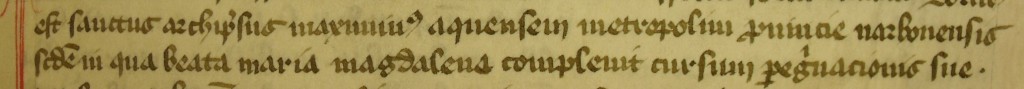 est sanctus archip̃sus maximiuꝰ aquensem metropolim ꝓuincie narbonensis
scd̃em qua beata maria magdalena compleuit cursum ꝑegⁱnacionis sue ·